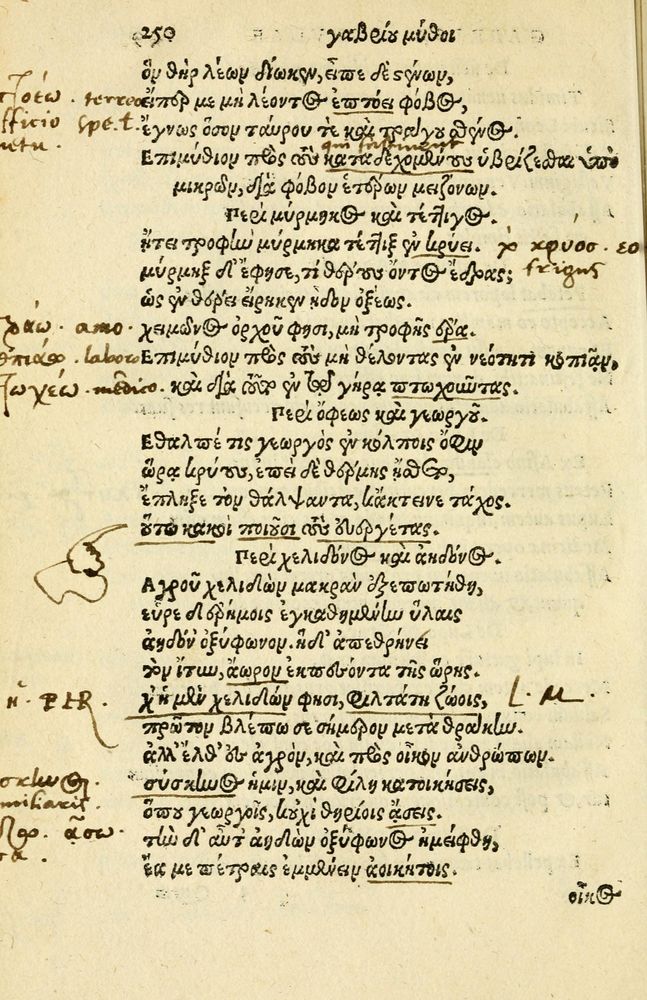 250 γαβρίου μύθοι
ὃν θὴρ λέων διώκων, εἶπε δὲ στένων,
εἴπερ με μὴ λέοντος ἐπτόει φόβος,
ἔγνως ὅσον ταύρου τε καὶ τράγου σθένος.
Επιμύθιον πρὸς τοὺς καταδεχομένους ὑβρίζεσθαι ὑπὸ
μικρῶν, διὰ φόβον ἑτέρων μειζόνων.
Περὶ μύρμηκος καὶ τέττιγος.
ᾔτει τροφὴν μύρμηκα τέττιξ ἐν κρύει.
μύρμηξ δ' ἔφησε, τί θέρους ὄντος ἔδρας;
ὡς ἐν θέρει εἴρηκεν ᾖδον ὀξέως.
χειμῶνος ὀρχοῦ φησι, μὴ τροφῆς ἔρα.
Επιμύθιον πρὸς τοὺς μὴ θέλοντας ἐν νεότητι κοπιᾷν,
καὶ διὰ τοῦτο ἐν τῷ γήρᾳ πτωχοιῶτας.
Περὶ ὄφεως καὶ γεωργοῦ.
Εθαλπέ τις γεωργὸς ἐν κόλποις ὄφιν
ὥρᾳ κρύους, ἐπεὶ δὲ θέρμης ᾔσθετο,
ἔπληξε τὸν θάλψαντα, κἄκτεινε τάχος.
οὕτω κακοὶ ποιοῦσι τοὺς εὐεργέτας.
Περὶ χελιδόνος καὶ ἀηδόνος.
Αγροῦ χελιδὼν μακρὰν ἐξεπωτήθη,
εὗρε δ' ἐρήμοις ἐγκαθημένην ὕλαις
ἀηδόν' ὀξύφωνον. ἡ δ' ἀπεθρήνει
τὸν ἴτυν, ἄωρον ἐκπεσόντα τῆς ὥρης.
χ' ἡ μὲν χελιδὼν φησι, φιλτάτη ζώοις,
πρῶτον βλέπω σε σήμερον μετὰ θρᾴκην.
ἀλλ' ἔλθ' ἐς ἀγρὸν, καὶ πρὸς οἶκον ἀνθρώπων.
σύσκηνος ἡμῖν, καὶ φίλη κατοικήσεις,
ὅπου γεωργοῖς, κοὐχὶ θηρίοις ᾄσεις.
τὴν δ' αὖτ' ἀηδὼν ὀξύφωνος ἠμείφθη,
ἔα με πέτραις ἐμμένειν ἀοικήτοις.
οἶκος
terreo
κρύος. εο
frigus
amo.
laboro
mendico.
η. PER.
L. M.
miliaris.
ᾄσω.